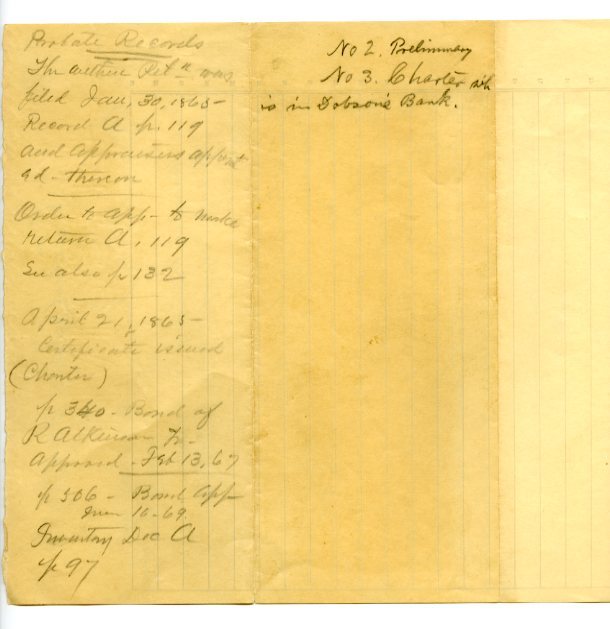 Probate Records
The within Petn was
filed Jan, 30, 1865-
Record A p. 119
and Appraisers appoint
ed - thereon
Order to app - to make
return A, 119
See also p 132
April 21, 1865-
Certificate issued
(Charter)
p 340 - Bond of
R Atkinson Jr-
Approved - Feb 13, 67
p 506 - Bond App
10-69
Inventory Doc A
p 97
No 2. Preliminary
No 3. Charter wh
is in Dobson's Bank.